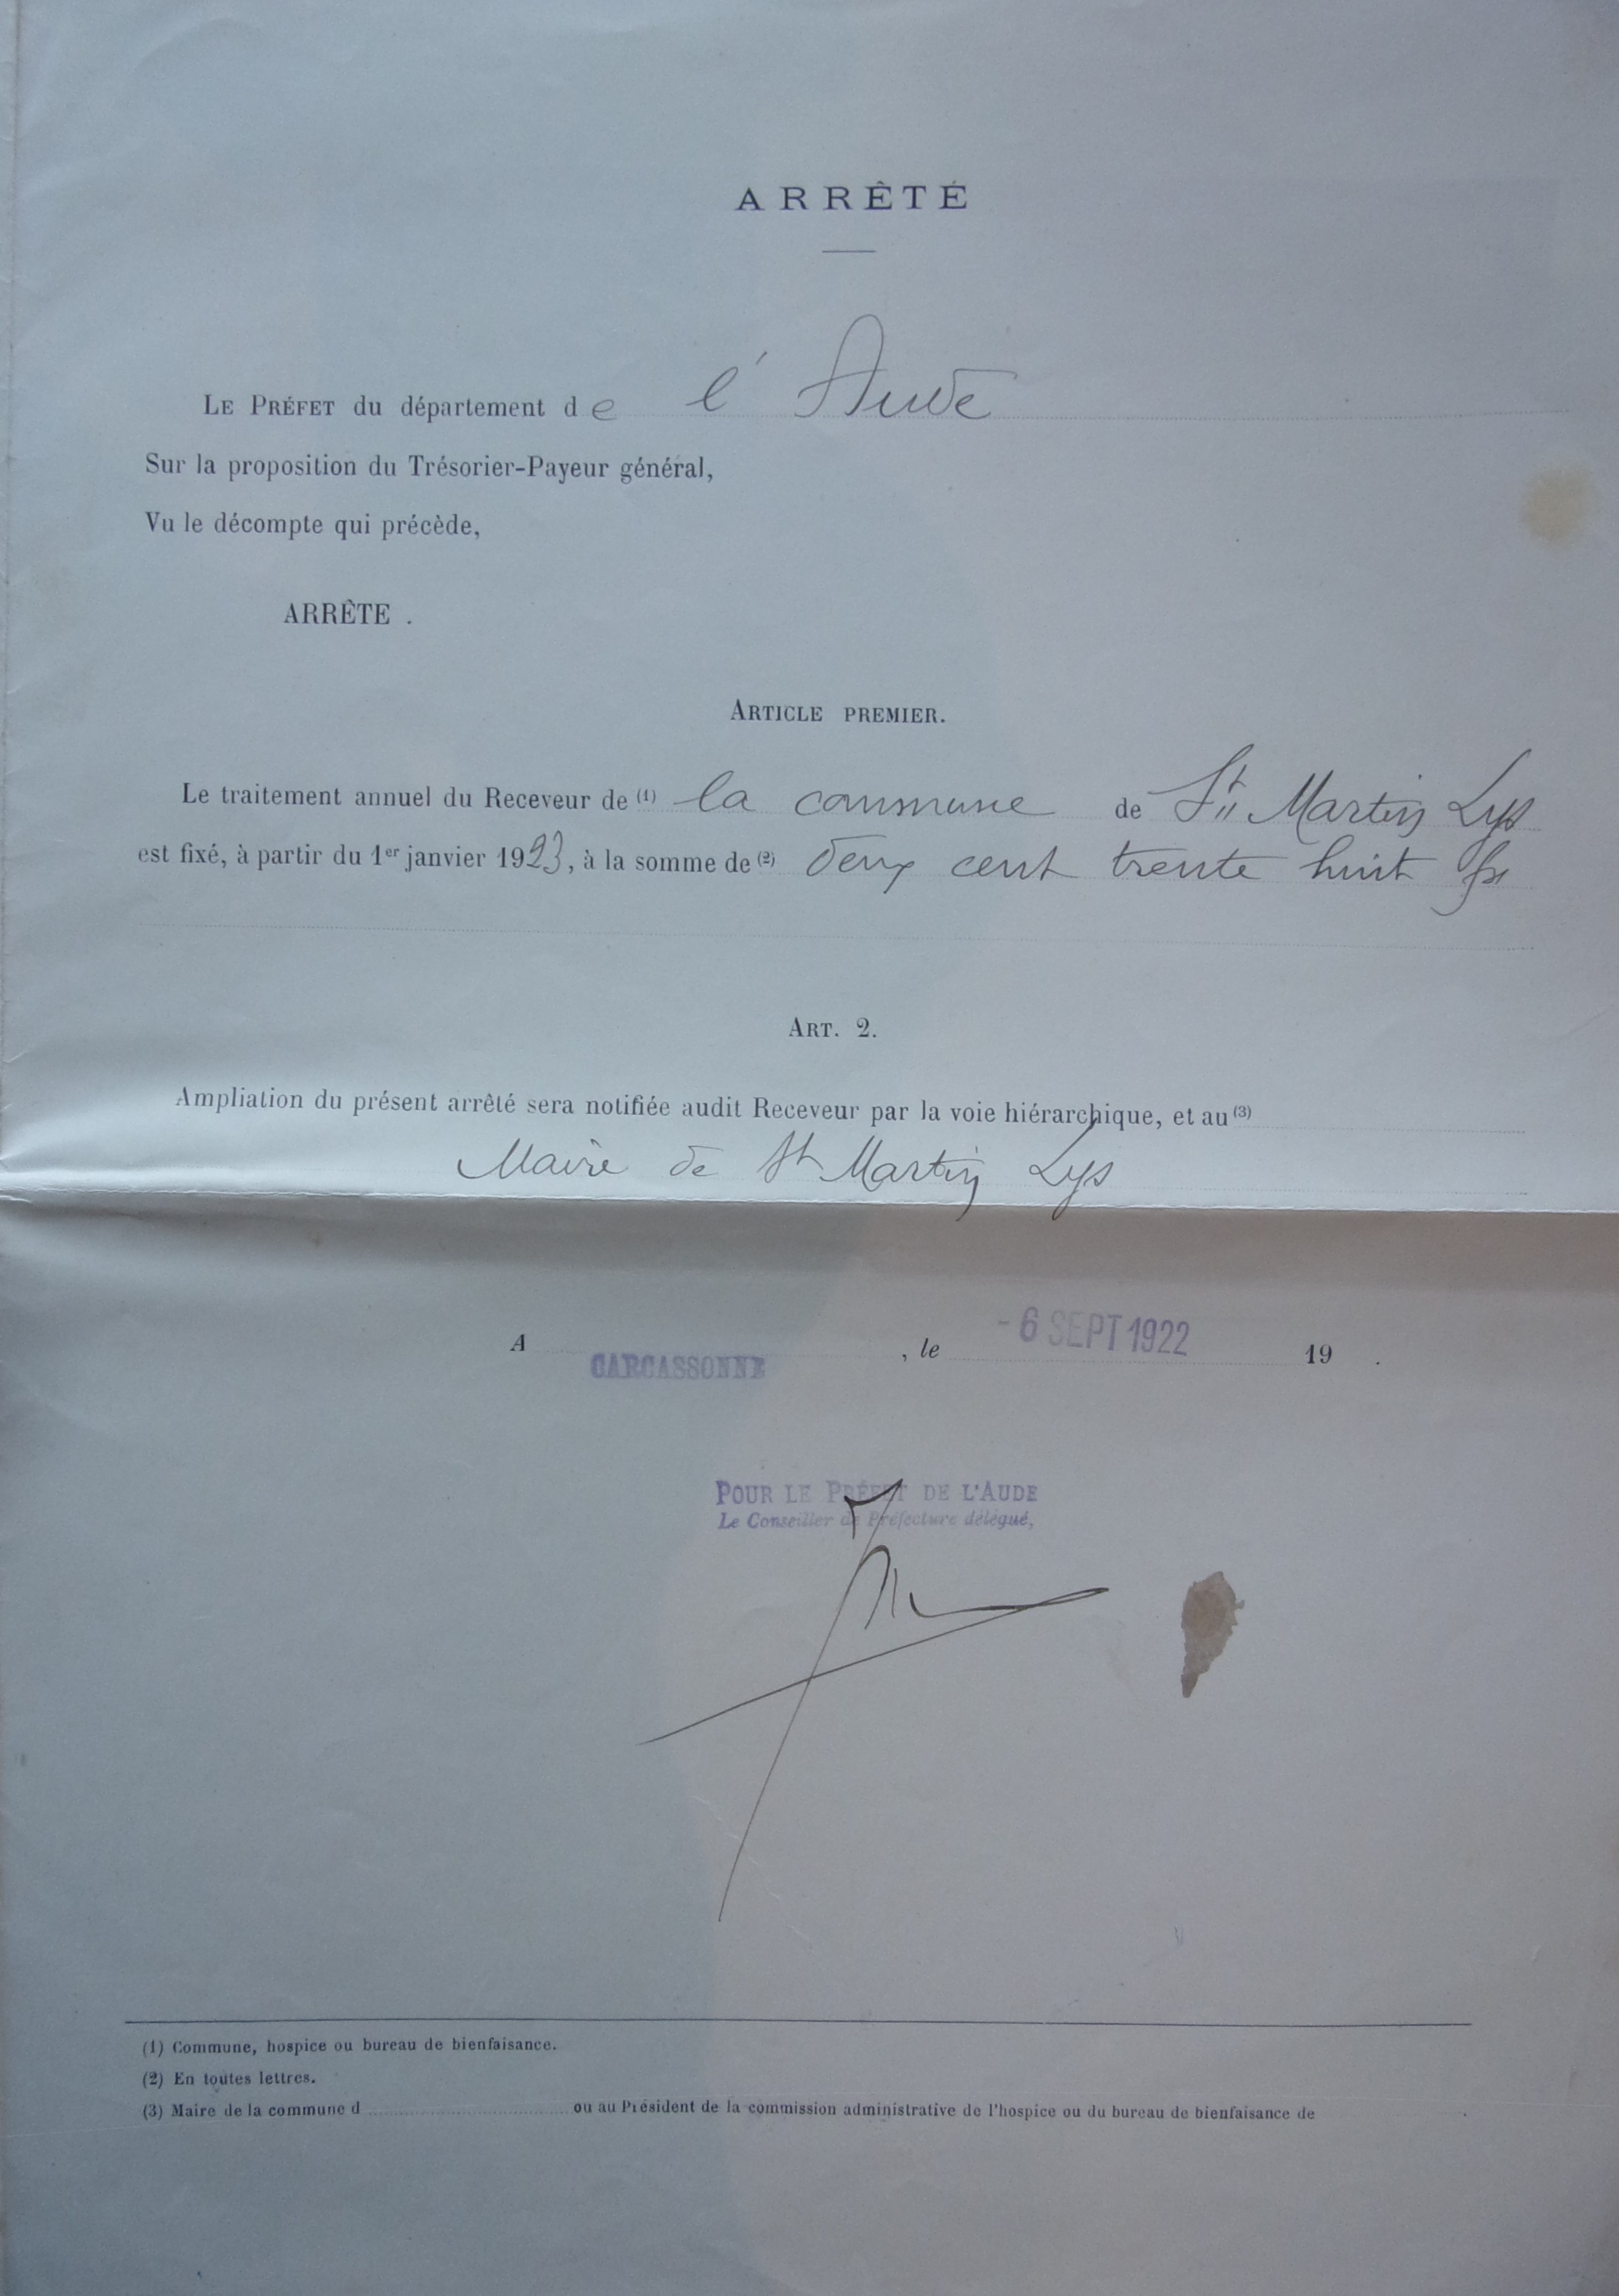 ARRÊTÉ
LE PRÉFET du département de l'Aude
Sur la proposition du Trésorier-Payeur général,
Vu le décompte qui précède,
ARRÊTE .
ARTICLE PREMIER.
Le traitement annuel du Receveur de (1) la commune de St Martin Lys
est fixé, à partir du 1er janvier 1923, à la somme de (2) deux cent trente huit frs
ART. 2.
Ampliation du présent arrêté sera notifiée audit Receveur par la voie hiérarchique, et au (3)
Maire de St Martin Lys
A CARCASSONNE , le - 6 SEPT 1922 19 .
POUR LE PRÉFET DE L'AUDE
Le Conseiller de Préfecture délégué,
(1) Commune, hospice ou bureau de bienfaisance.
(2) En toutes lettres.
(3) Maire de la commune d ou au Président de la commission administrative de l'hospice ou du bureau de bienfaisance de .